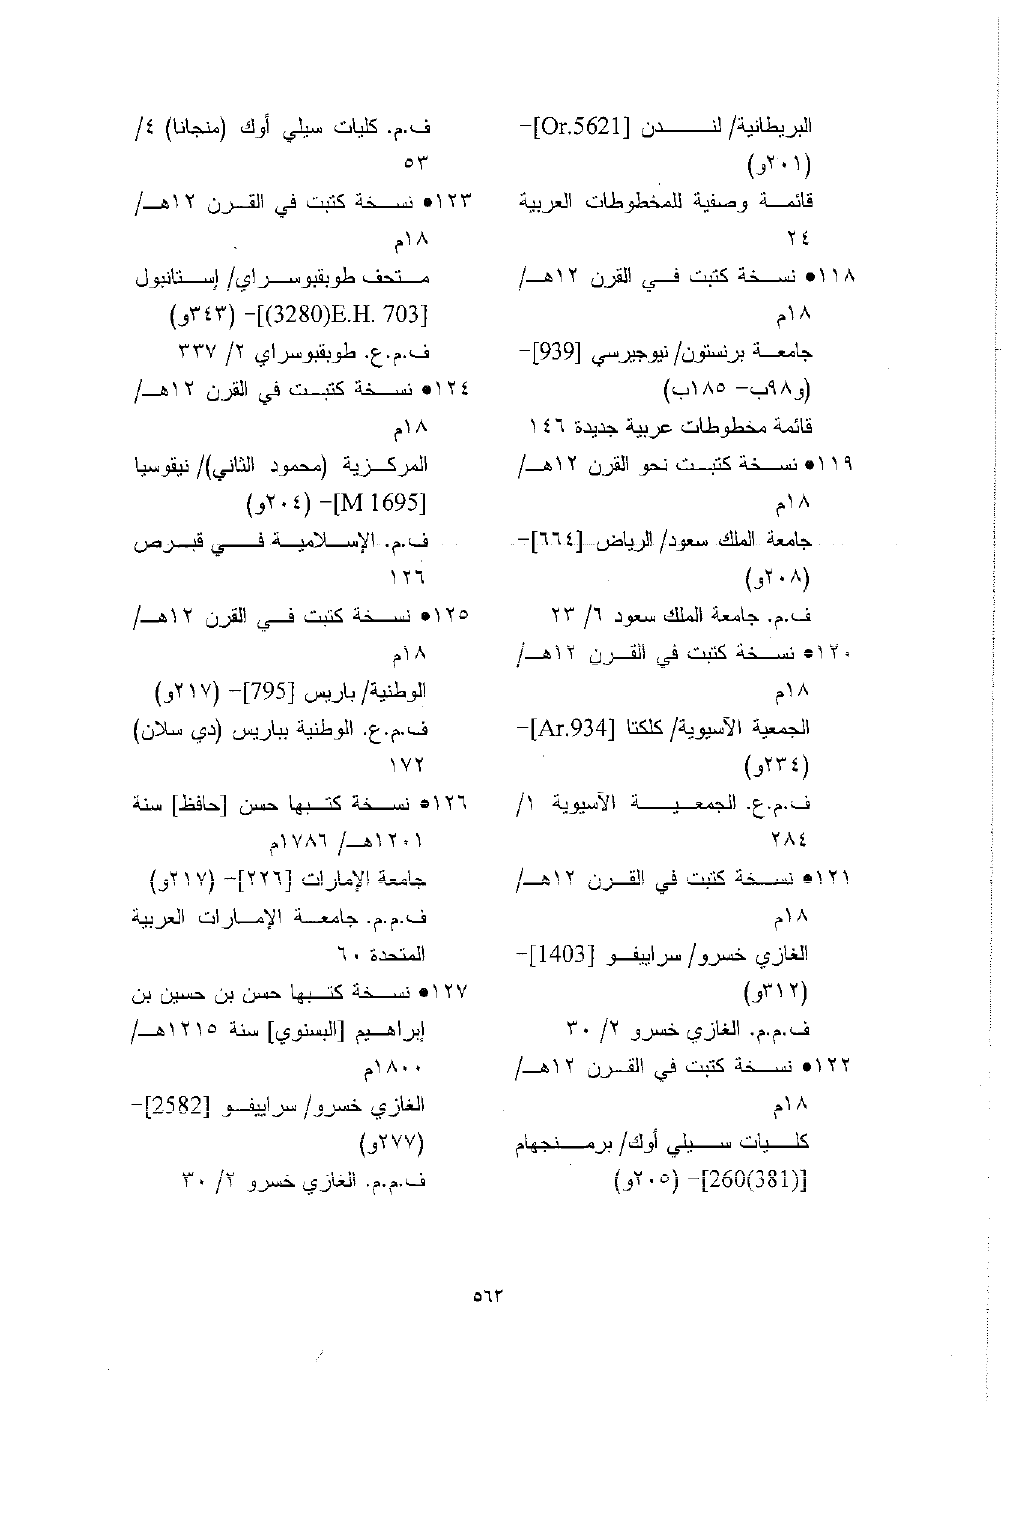 البريطانية/ لندن [Or.5621]-
(٢٠١و)
قائمة وصفية للمخطوطات العربية
٢٤
١١٨• نسخة كتبت في القرن ١٢هـ/
١٨م
جامعة برنستون/ نيوجيرسي [939]-
(و٩٨ب- ١٨٥ب)
قائمة مخطوطات عربية جديدة ١٤٦
١١٩• نسخة كتبت نحو القرن ١٢هـ/
١٨م
جامعة الملك سعود/ الرياض [٦٦٤]-
(٢٠٨و)
ف.م. جامعة الملك سعود ٦/ ٢٣
١٢٠• نسخة كتبت في القرن ١٢هـ/
١٨م
الجمعية الآسيوية/ كلكتا [Ar.934]-
(٢٣٤و)
ف.م.ع. الجمعية الآسيوية ١/
٢٨٤
١٢١• نسخة كتبت في القرن ١٢هـ/
١٨م
الغازي خسرو/ سراييفو [1403]-
(٣١٢و)
ف.م.م. الغازي خسرو ٢/ ٣٠
١٢٢• نسخة كتبت في القرن ١٢هـ/
١٨م
كليات سيلي أوك/ برمنجهام
[260(381)]- (٢٠٥و)
ف.م. كليات سيلي أوك (منجانا) ٤/
٥٣
١٢٣• نسخة كتبت في القرن ١٢هـ/
١٨م
متحف طوبقبوسراي/ إستانبول
[(3280)E.H. 703]- (٣٤٣و)
ف.م.ع. طوبقبوسراي ٢/ ٣٣٧
١٢٤• نسخة كتبت في القرن ١٢هـ/
١٨م
المركزية (محمود الثاني)/ نيقوسيا
[M 1695]- (٢٠٤و)
ف.م. الإسلامية في قبرص
١٢٦
١٢٥• نسخة كتبت في القرن ١٢هـ/
١٨م
الوطنية/ باريس [795]- (٢١٧و)
ف.م.ع. الوطنية بباريس (دي سلان)
١٧٢
١٢٦• نسخة كتبها حسن [حافظ] سنة
١٢٠١هـ/ ١٧٨٦م
جامعة الإمارات [٢٢٦]- (٢١٧و)
ف.م.م. جامعة الإمارات العربية
المتحدة ٦٠
١٢٧• نسخة كتبها حسن بن حسين بن
إبراهيم [البسنوي] سنة ١٢١٥هـ/
١٨٠٠م
الغازي خسرو/ سراييفو [2582]-
(٢٧٧و)
ف.م.م. الغازي خسرو ٢/ ٣٠
٥٦٢